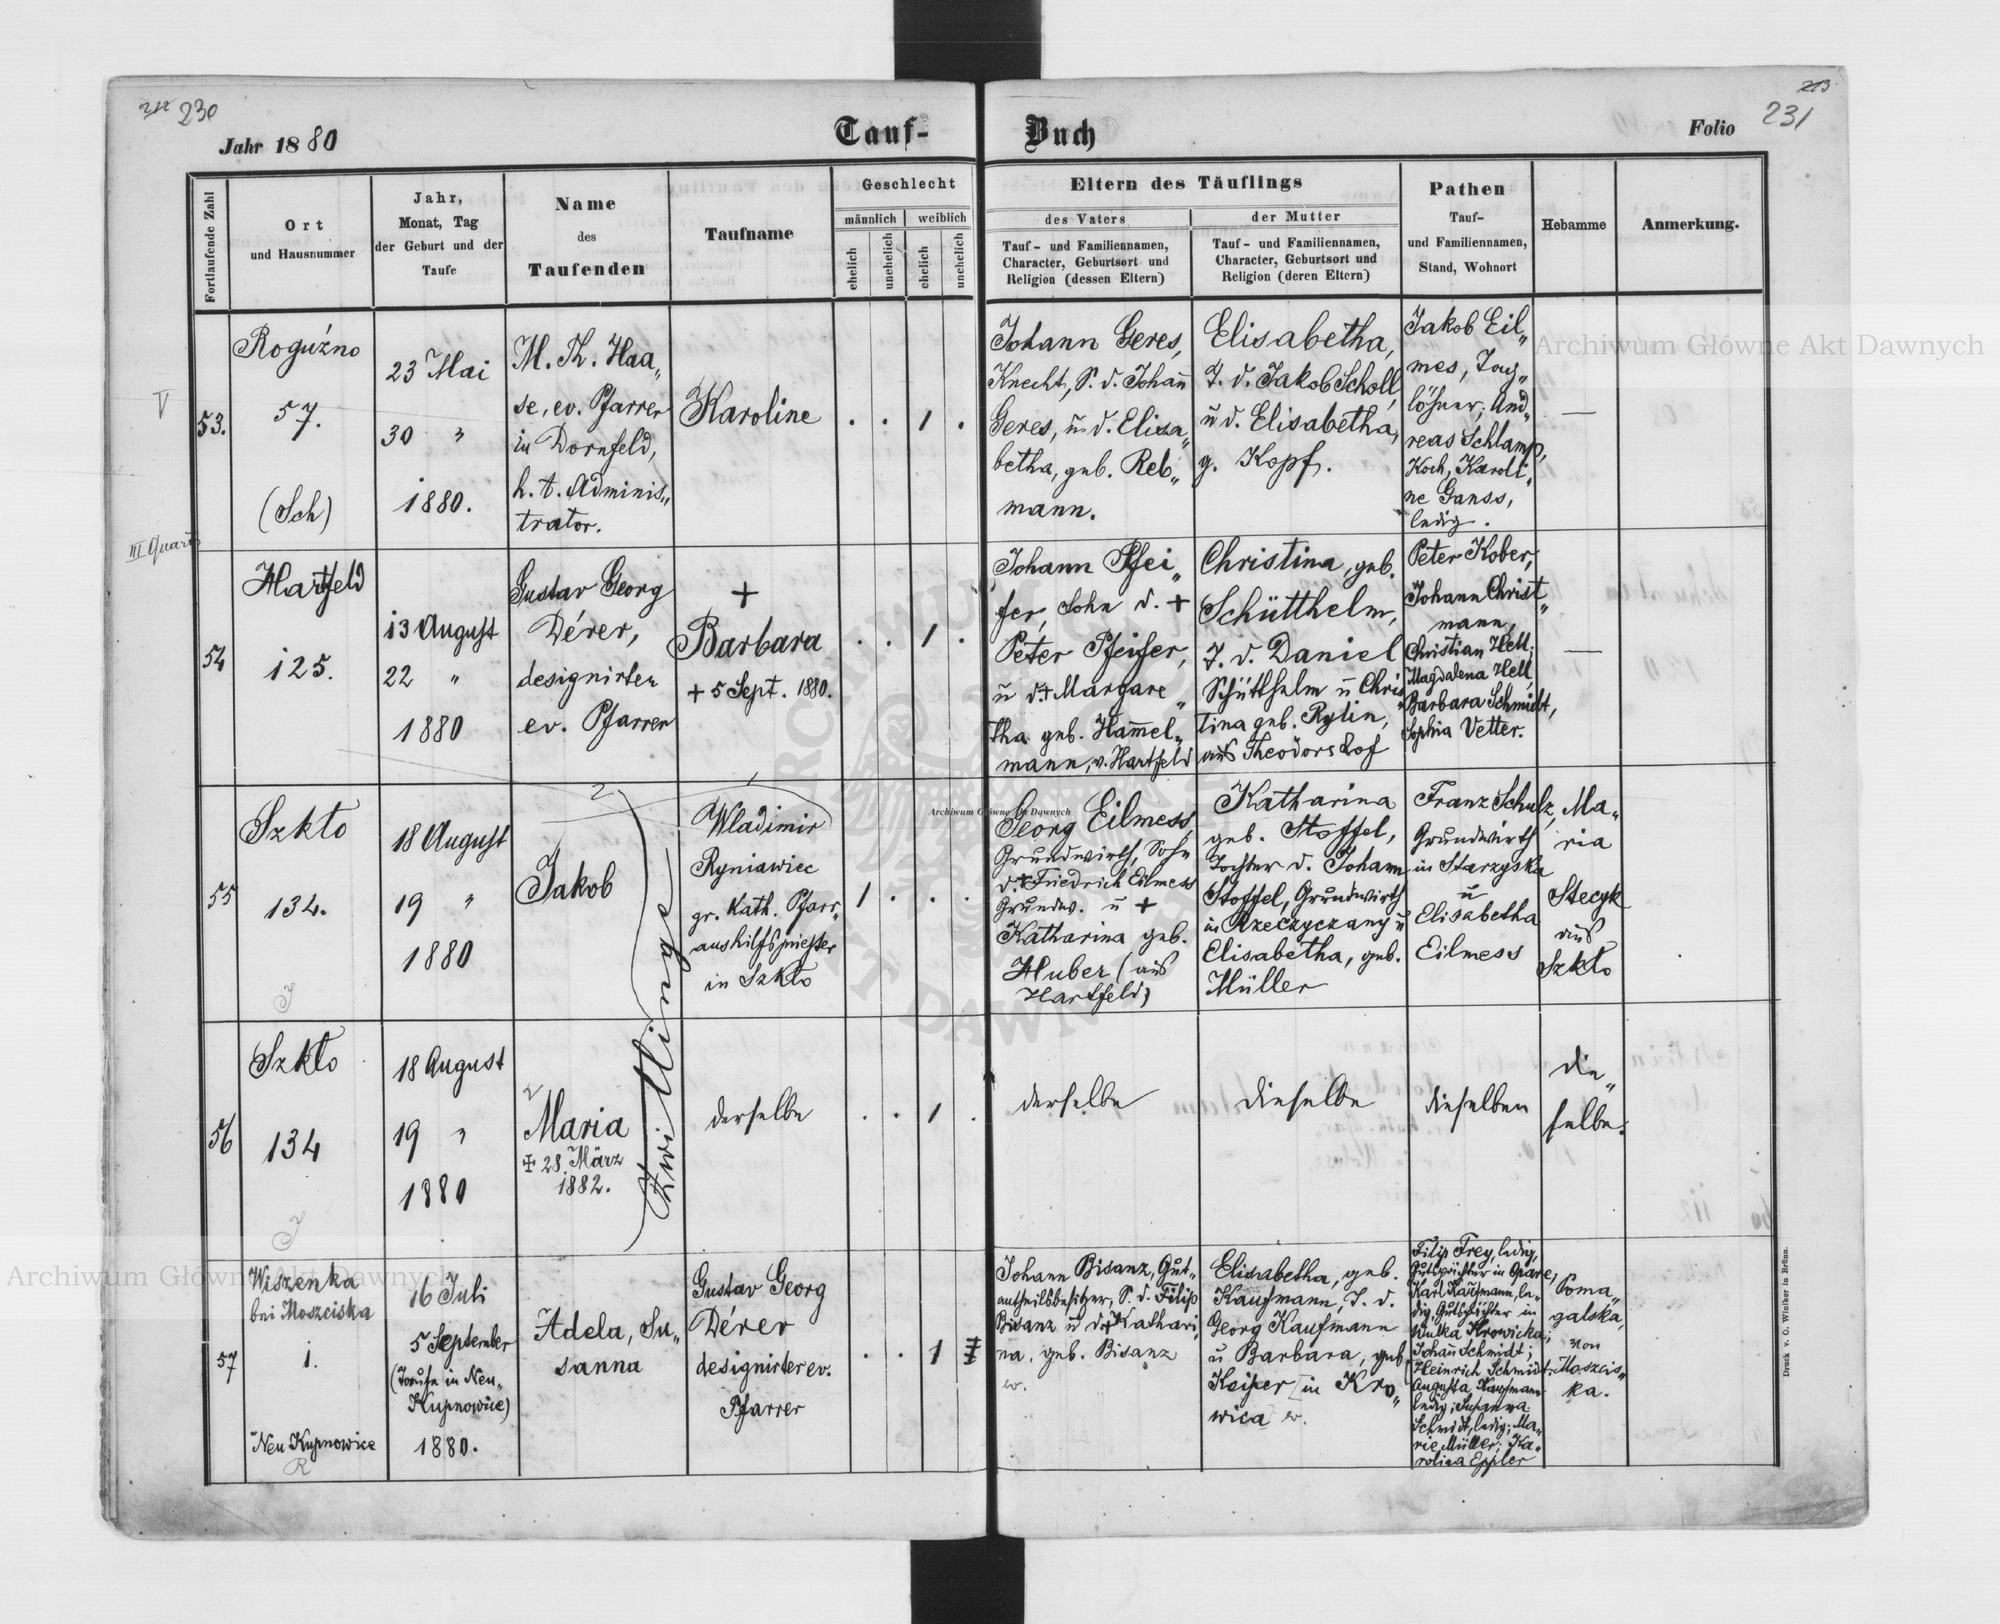 212 230
Jahr 1880
Tauf-
Buch
Folio
213
231
Fortlaufende Zahl
Ort
und Hausnummer
Jahr,
Monat, Tag
der Geburt und der
Taufe
Name
des
Taufenden
Taufname
Geschlecht
männlich
weiblich
ehelich
unehelich
ehelich
unehelich
Eltern des Täuflings
des Vaters
Tauf- und Familiennamen,
Character, Geburtsort und
Religion (dessen Eltern)
der Mutter
Tauf- und Familiennamen,
Character, Geburtsort und
Religion (deren Eltern)
Pathen
Tauf-
und Familiennamen,
Stand, Wohnort
Hebamme
Anmerkung.
V
53.
Roguźno
57.
(Sch)
23 Mai
30 "
1880.
M. Th. Haa„
se, ev. Pfarrer
in Dornfeld,
h. t. Adminis„
trator.
Karoline
. . 1 .
Johann Geres,
Knecht, S. d. Johann
Geres, u d. Elisa„
betha, geb. Reb„
mann.
Elisabetha,
T. d. Jakob Scholl,
u d. Elisabetha,
g. Kopf.
Jakob Eil„
mes, Tag„
löhner, And„
reas Schlamp,
Koch, Karoli„
ne Ganss,
ledig.
—
III Quart
54
Hartfeld
125.
13 August
22 "
1880
Gustav Georg
Dérer,
designirter
ev. Pfarrer
+
Barbara
+ 5 Sept. 1880.
. . 1 .
Johann Pfei„
fer, Sohn d. +
Peter Pfeifer,
u d.+ Margare„
tha geb. Hammel„
mann, v. Hartfeld
Christina, geb.
Schütthelm,
T. d. Daniel
Schütthelm u Chris„
tina geb. Rylin,
aus Theodorshof
Peter Kober,
Johann Christ„
mann,
Christian Hell,
Magdalena Hell,
Barbara Schmidt,
Sophia Vetter.
—
55
Szkło
134.
18 August
19 "
1880
Jakob
2
1
Zwillinge
Wladimir
Ryniawiec
gr. Kath. Pfarr„
aushilfspriester
in Szkło
1 . . .
Georg Eilmess,
Grundwirth, Sohn
d. + Friedrich Eilmess
Grundw. u +
Katharina geb.
Huber (aus
Hartfeld)
Katharina
geb. Stoffel,
Tochter d. Johann
Stoffel, Grundwirth
in Rzeczyczany u
Elisabetha, geb.
Müller
Franz Schulz,
Grundwirth
in Starzyska
u
Elisabetha
Eilmess
Ma„
ria
Stecyk
aus
Szkło
56
Szkło
134
18 August
19 "
1880
Maria
+ 28 März
1882.
derselbe
. . 1 .
derselbe
dieselbe
dieselben
die„
selbe.
57
Wiszenka
bei Moszciska
1.
Neu Kupnowice
R
16 Juli
5 September
(Taufe in Neu„
Kupnowice)
1880.
Adela, Su„
sanna
Gustav Georg
Dérer
designirter ev.
Pfarrer
. . 1
Johann Bisanz, Gut„
antheilsbesitzer, S. d. Filip
Bisanz u d.+ Kathari„
na, geb. Bisanz
ev.
Elisabetha, geb.
Kaufmann, T. d.
Georg Kaufmann
u Barbara, geb.
Keiper in Kro„
wica ev.
Filip Frey, ledig,
Gutspächter in Opare,
Karl Kaufmann, le„
dig, Gutspächter in
Wulka Krowicka;
Johann Schmidt;
Heinrich Schmidt;
Augusta Kaufmann
ledig; Susanna
Schmidt, ledig; Ma„
rie Müller; Ka„
rolina Eppler
Poma„
galska,
von
Moszcis„
ka.
Druck v. C. Winiker in Brünn.
Archiwum Główne Akt Dawnych
Archiwum Główne Akt Dawnych
Archiwum Główne Akt Dawnych